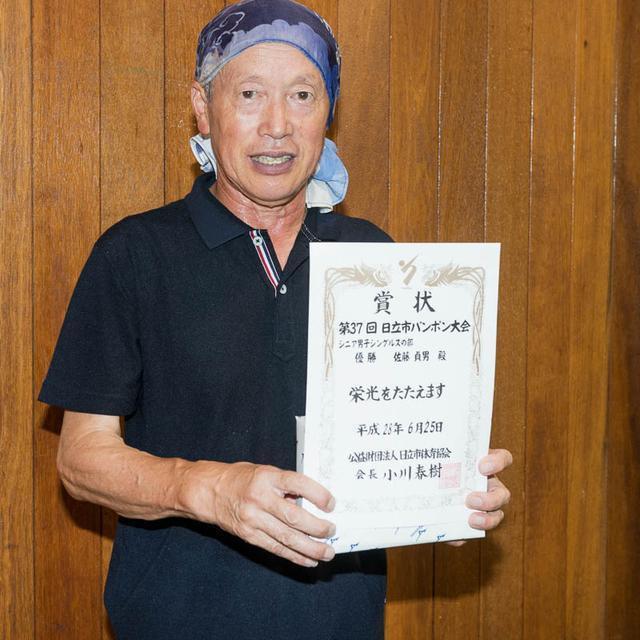 賞状
第37回 日立市パンポン大会
シニア男子シングルスの部
優勝 佐藤貞男 殿
栄光をたたえます
平成28年6月25日
公益財団法人日立市体育協会
会長 小川春樹